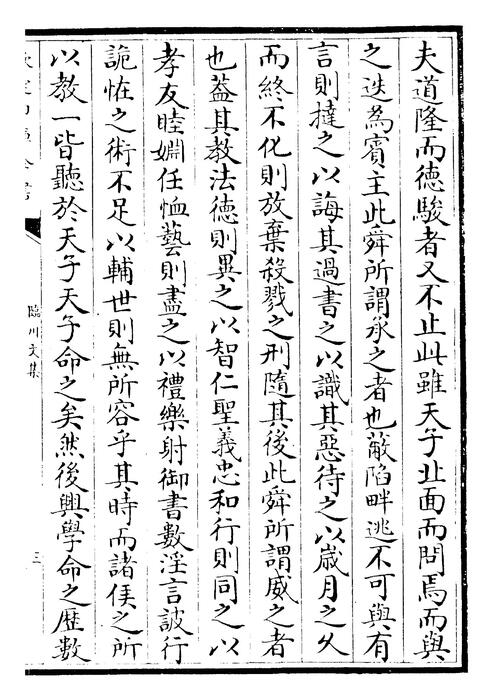 夫道隆而德駿者又不止此雖天子北面而問焉而與
之迭為賓主此舜所謂承之者也蔽陷畔逃不可與有
言則撻之以誨其過書之以識其惡待之以歲月之久
而終不化則放棄殺戮之刑隨其後此舜所謂威之者
也葢其教法德則異之以智仁聖義忠和行則同之以
孝友睦婣任恤藝則盡之以禮樂射御書數淫言詖行
詭怪之術不足以輔世則無所容乎其時而諸侯之所
以教一皆聽於天子天子命之矣然後興學命之歴數
臨川文集
三